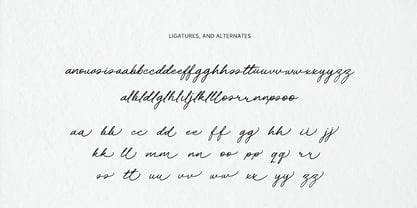 LIGATURES, AND ALTERNATES
anouosisaabbccddeeffgghhssttuuvvwwxxyyzz
albldlglhliljlklllosrrnnpsoo
aa bb cc dd ee ff gg hh ii jj
kk ll mm nn oo pp qq rr
ss tt uu vv ww xx yy zz